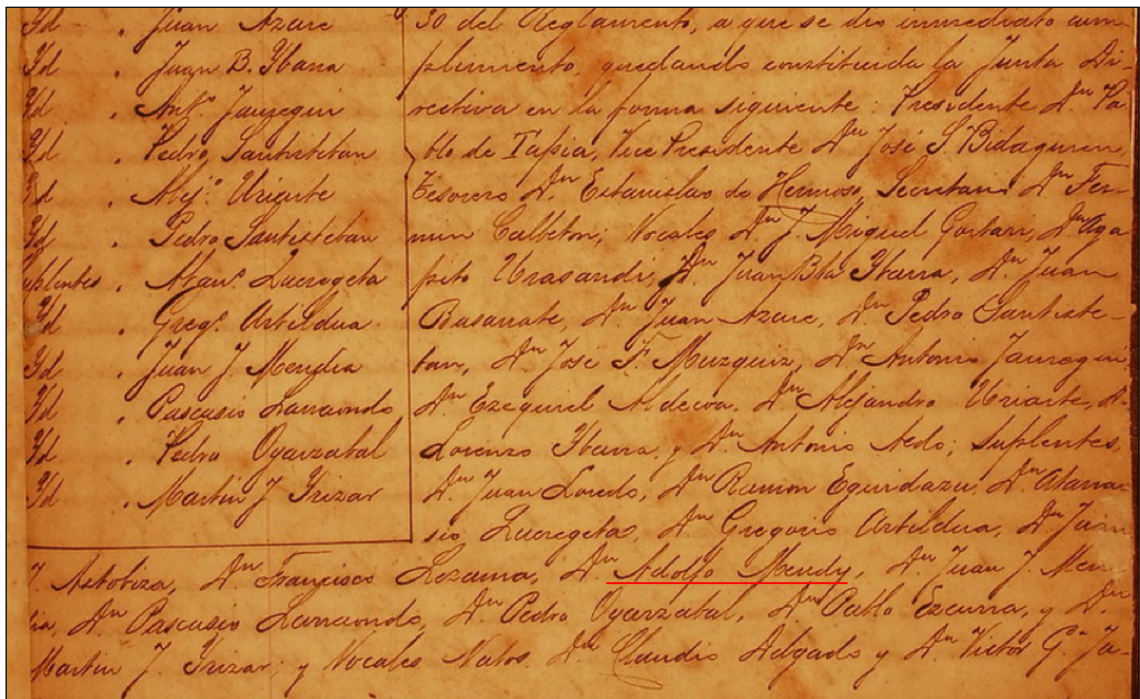 Yd . Juan Azare
Yd . Juan B. Ybarra
Yd . Antº Jauregui
Yd . Pedro Santisteban
Yd . Alejº Uriarte
Yd . Pedro Santisteban
uplentes . Atanº Lucregeta
Yd . Gregº Artildua
Yd . Juan J. Mendia
Yd . Pascasio Larraondo
Yd . Pedro Oyarzabal
Yd . Martin J Irizar
30 del Reglamento, a que se dio inmediato cum
plimento, quedando constituida la Junta Di-
rectiva en la forma siguiente: Presidente Dn Pa
blo de Tapia, Vice Presidente Dn José S Bidaguren
Tesorero Dn Estanislao de Hermoso, Secretario Dn Fer-
min Calbeton; Vocales Dn J. Miguel Gortari, Dn Aga
pito Urasandi, Dn Juan Bta Ybarra, Dn Juan
Basarrate, Dn Juan Azare, Dn Pedro Santiste-
ban, Dn José F. Muzquiz, Dn Antonio Jauregui
Dn Ezequiel Aldecoa, Dn Alejandro Uriarte, D.
Lorenzo Ybarra y Dn Antonio Aedo; Suplentes,
Dn Juan Loredo, Dn Ramon Eguidazu, Dn Atana-
sio Lucregeta, Dn Gregorio Artildua, Dn Juan
J. Astobiza, Dn Francisco Lezama, Dn Adolfo Mendy, Dn Juan J. Men-
dia, Dn Pascasio Larraondo, Dn Pedro Oyarzabal, Dn Pablo Ezcurra, y Dn
Martin J. Irizar; y Vocales Natos Dn Claudio Delgado y Dn Victor G. Ja-